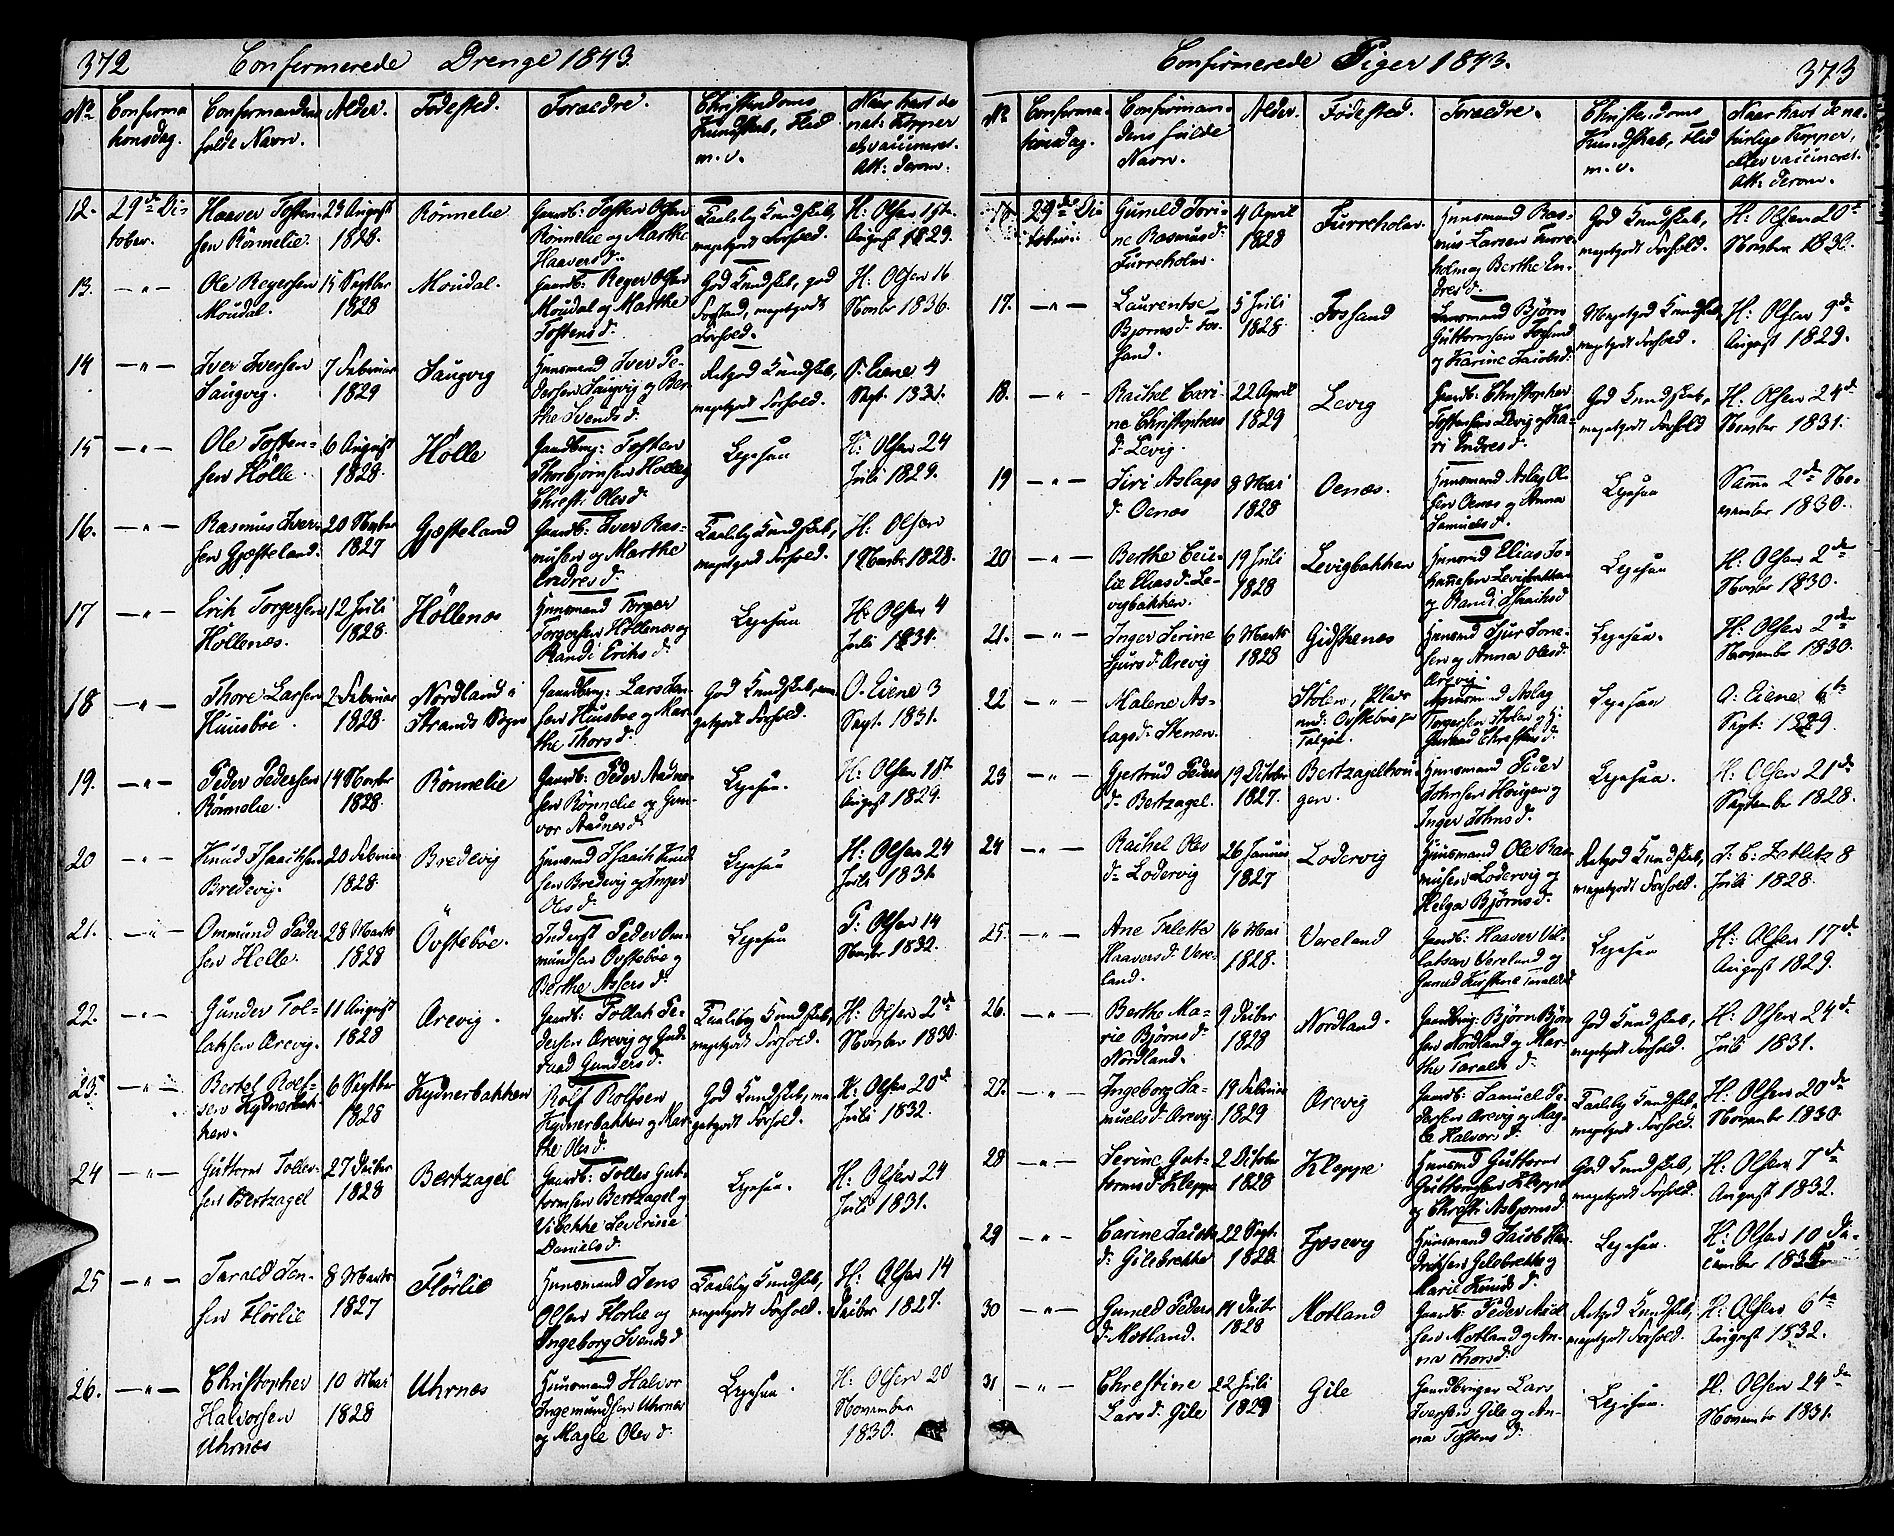 372
Confirmerede Drenge 1843.
No
Confirma
tionsdag.
Confirmandens
fulde Navn.
Alder.
Fødested.
Forældre.
Christendoms
Kundskab, Flid
m. v.
Naar havt de
nat: Kopper
elr vaccineret.
Att: derom.
12.
29de Oc
tober.
Haaver Tosten-
sen Rönnelie.
23 August
1828.
Rönnelie
Gaardb: Tosten Olsen
Rönnelie og Marthe
Haaversd:
Kundskab,
megetgodt Forhold.
H: Olsen 1ste
August 1829.
13.
—"—
Ole Regersen
Moudal.
15 Septbr
1828
Moudal.
Gaardb: Reger Olsen
Moudal og Marthe
Tostensd:
God Kundskab, god
megetgodt
Forhold.
H: Olsen 16
Novbr 1836.
14
—"—
Iver Iversen
Saugvig.
7 Februar
1829
Saugvig
Huusmand Iver Pe-
dersen Saugvig og Ber-
the Svendsd:
Retgod Kundskab,
megetgodt Forhold.
O. Eiene 4
Sept. 1831.
15
—"—
Ole Tosten-
sen Hölle.
6 August
1828.
Hölle
Gaardbrg: Tosten
Thorbjørnsen Hölle og
Christi Olesd:
Ligesaa
H: Olsen 24
Juli 1829.
16.
—"—
Rasmus Iver-
sen Gjesteland.
20 Novbr
1827
Gjesteland
Gaardb: Iver Ras-
musen og Marthe
Endresd:
Kundskab,
megetgodt Forhold.
H: Olsen
1 Novbr 1828.
17
—"—
Erik Torgersen
Höllenæs.
12 Juli
1828.
Höllenæs
Huusmand Torger
Torgersen Höllenæs og
Randi Eriksd:
Ligesaa
H: Olsen 4
Juli 1834.
18
—"—
Thore Larsen
Huusböe.
2 Februar
1828.
Nordland i
Strands Sogn
Gaardbrg: Lars
sen Huusböe og Mar-
the Thorsd:
God Kundskab, me-
getgodt Forhold.
O. Eiene 3
Sept. 1831.
19.
—"—
Peder Pedersen
Rönnelie.
14 Novbr
1828.
Rönnelie
Gaardb: Peder Aadne-
sen Rönnelie og Gun-
vor Aadnesd:
Ligesaa.
H: Olsen 1st
August 1829.
20
—"—
Knud Isaaksen
Bredevig.
20 Februar
1828.
Bredevig
Huusmd Isaak Knud
sen Bredevig og Inger
Olesd:
Ligesaa
H: Olsen 24
Juli 1831.
21.
—"—
Ommund Peder
sen Helle.
28 Marts
1828
Övsteböe.
Inderst Peder Om-
mundsen Övsteböe og
Berthe Assersd:
Ligesaa
P: Olsen 14
Novbr 1832.
22.
—"—
Gunder Tol-
laksen Orevig.
11 August
1828
Orevig.
Gaardb: Tollak Pe-
dersen Orevig og
Gundersd:
Kundskab,
megetgodt Forhold.
H: Olsen 2de
Novbr 1830.
23.
—"—
Bertel Rolf-
sen Kydnerbak-
ken.
6 Septbr
1828
Kydnerbakken
Rolf Rolfsen
Kydnerbakken og Mar-
the Olesd:
God Kundskab, me-
getgodt Forhold.
H: Olsen 20de
Juli 1832.
24
—"—
Guttorm Tolles-
sen Bertzagel
27 Octbr
1828
Bertzagel
Gaardb: Tolles Gut-
tormsen Bertzagel og
Vibekke Severine
Danielsd:
Ligesaa.
H: Olsen 24
Juli 1831.
25
—"—
Tarald Jen-
sen Flörlie
8 Marts
1827
Flörlie
Huusmand Jens
Olsen Flörlie og
Ingeborg Svendsd:
Kundskab,
megetgodt Forhold.
H: Olsen 14
Octbr 1827.
26.
—"—
Christopher
Halvorsen
Uhrnæs
10 Mai
1828
Uhrnæs
Huusmand Halvor
Ingemundsen Uhrnæs
og Magle Olesd:
Ligesaa.
H: Olsen 20
November
1830.
373
Confirmerede Piger 1843.
No
Confirma-
tionsdag.
Confirman-
dens fulde
Navn.
Alder.
Fødested.
Forældre.
Christendoms
Kundskab, Flid
m. v.
Naar havt de na-
turlige Kopper,
eller vaccineret.
Att: derom.
16
29de Oc
tober.
Gunild Tori-
ne Rasmusd:
Furreholm.
4 April
1828
Furreholm.
Huusmand Ras-
mus Larsen Furre-
holm og Berthe En-
dresd:
God Kundskab,
megetgodt Forhold.
H: Olsen 20de
November 1830.
17.
—"—
Laurentse
Bjørnsd: Fos-
sand.
5 Juli
1828.
Fossand
Huusmand Bjørn
Guttormsen Fossand
og Karine Jacobsd:
Megetgod Kundskab,
megetgodt Forhold.
H: Olsen 9de
August 1829.
18.
—"—
Rachel Cari-
ne Christophers
d: Levig.
22 April
1829
Levig
Gaardb: Christopher
Tostensen Levig og Ka-
ri Endresd:
God Kundskab,
megetgodt Forhold
H: Olsen 24de
November 1831.
19
—"—
Siri Aslags
d: Oenæs
8 Mai
1828
Oenæs.
Huusmand Aslag Ol-
sen Oenæs og Anna
Samuelsd:
Ligesaa
Samme 2de No-
vember 1830.
20
—"—
Berthe Ceci-
lie Eliasd: Le-
vigbakken.
19 Juli
1828
Levigbakken
Huusmd Elias Jo-
hannesen Levigbakken
og Randi Isaaksd:
Ligesaa
H: Olsen 2den
November 1830.
21.
—"—
Inger Serine
Sjursd: Orevig
6 Marts
1828
Gidskenes
Huusmd Sjur Tone-
sen og Anna Olesd:
Orevig.
Ligesaa.
H: Olsen 2den
November 1830.
22
—"—
Malene As-
lagsd: Stenen.
Aslag
Torgersen Stolen og
Christensd:
Ligesaa
O: Eiene 6te
Sept: 1829.
23
—"—
Gjertrud Peders
d: Bertzagel.
19 October
1827.
Bertzagelhou-
gen.
Huusmand Peder
Johnsen Hougen og
Inger Johnsd:
Ligesaa.
H: Olsen 21de
September 1828.
24
—"—
Rachel Oles
d: Lodervig
26 Januar
1827
Lodervig
Huusmand Ole Ras-
musen Lodervig og
Helga Bjørnsd:
Retgod Kundskab,
megetgodt Forhold.
J: C: Zetlitz 8
Juli 1828.
25.
—"—
Ane Taletta
Haaversd: Vere-
land.
16 Mai
1828.
Vereland
Gaardb: Haaver Vil-
latsen Vereland og
Gunild Kirstine Taraldsd:
Ligesaa
H: Olsen 17de
August 1829.
26.
—"—
Berthe Ma-
rie Bjørnsd:
Nordland.
9 Octber
1828
Nordland.
Gaardbrg: Bjørn Bjørn
sen Nordland og Mar-
the Taraldsd:
God Kundskab,
megetgodt Forhold.
H: Olsen 24de
Juli 1831.
27.
—"—
Ingeborg Sa-
muelsd: Orevig
19 Februar
1829
Orevig
Gaardb: Samuel Pe-
dersen Orevig og Mag-
le Halvorsd:
Kundskab,
megetgodt Forhold.
H: Olsen 20de
November 1830.
28
—"—
Serine Gut-
tormsd: Kleppe
2 October
1828
Kleppe
Huusmd Guttorm
Guttormsen Kleppe
og Christi Asbjørnsd:
God Kundskab,
megetgodt Forhold.
H: Olsen 7de
August 1832.
29
—"—
Carine Jacobs
d: Gilebrekke
22 Sept:
1828
Fjosevig
Huusmand Jacob Hen-
driksen Gilebrekke og
Marie Knudsd:
Ligesaa.
H: Olsen 10 De-
cember
30
—"—
Gunild Peders
d: Motland.
14 Octbr
1828
Motland
Gaardb: Peder Mid-
sen Motland og An-
na Thorsd:
Retgod Kundskab,
megetgodt Forhold.
H: Olsen 6te
August 1832.
31
—"—
Christine
Larsd: Gile
22 Juli
1829
Gile
Gaardbruger Lars
Iversen Gile og An-
na Tostensd:
Ligesaa.
H. Olsen 24de
November 1831.